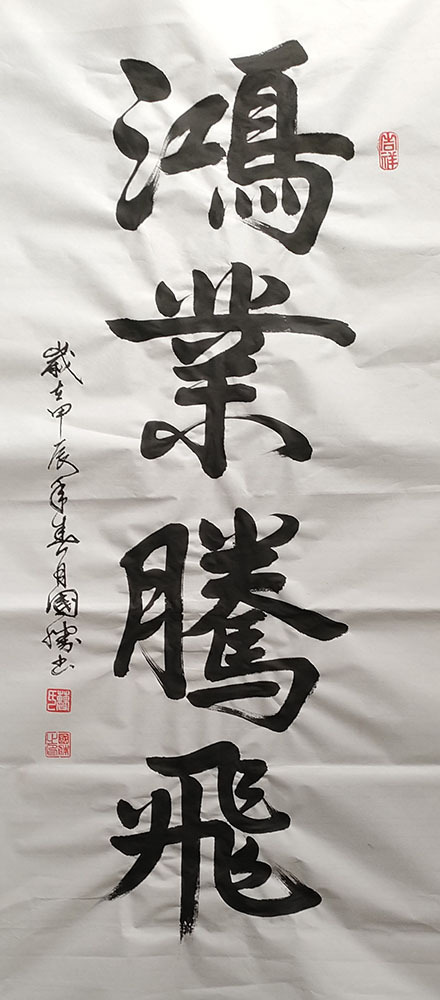 吉祥
鴻業騰飛
歲在甲辰年春月國勝書